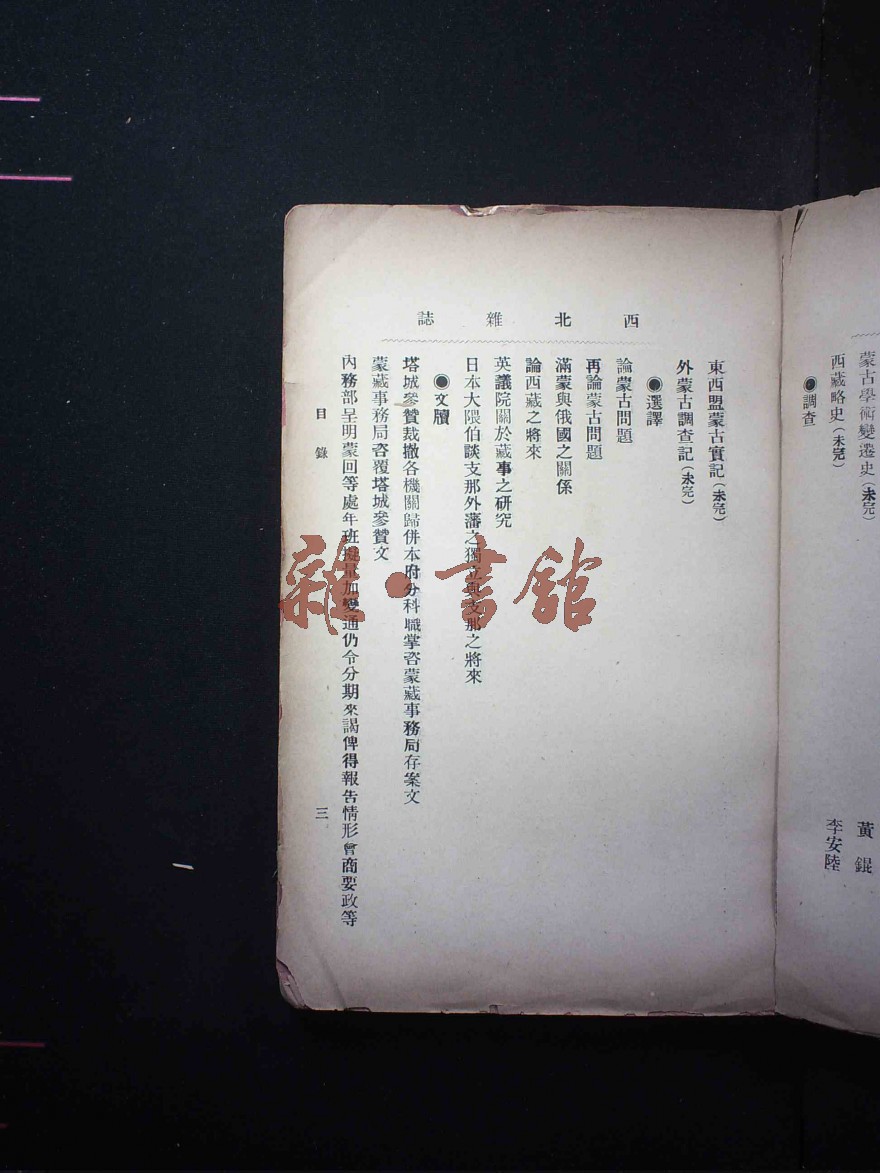 蒙古學術變遷史(未完)
黃錕
西藏略史(未完)
李安陸
●調查
西北雜誌
東西盟蒙古實記(未完)
外蒙古調查記(未完)
●選譯
論蒙古問題
再論蒙古問題
滿蒙與俄國之關係
論西藏之將來
英議院關於藏事之研究
日本大隈伯談支那外藩之獨立與支那之將來
●文牘
塔城參贊裁撤各機關歸併本府分科職掌咨蒙藏事務局存案文
蒙藏事務局咨覆塔城參贊文
內務部呈明蒙回等處年班擬量加變通仍令分期來謁俾得報告情形會商要政等
目錄
三
雜·書館